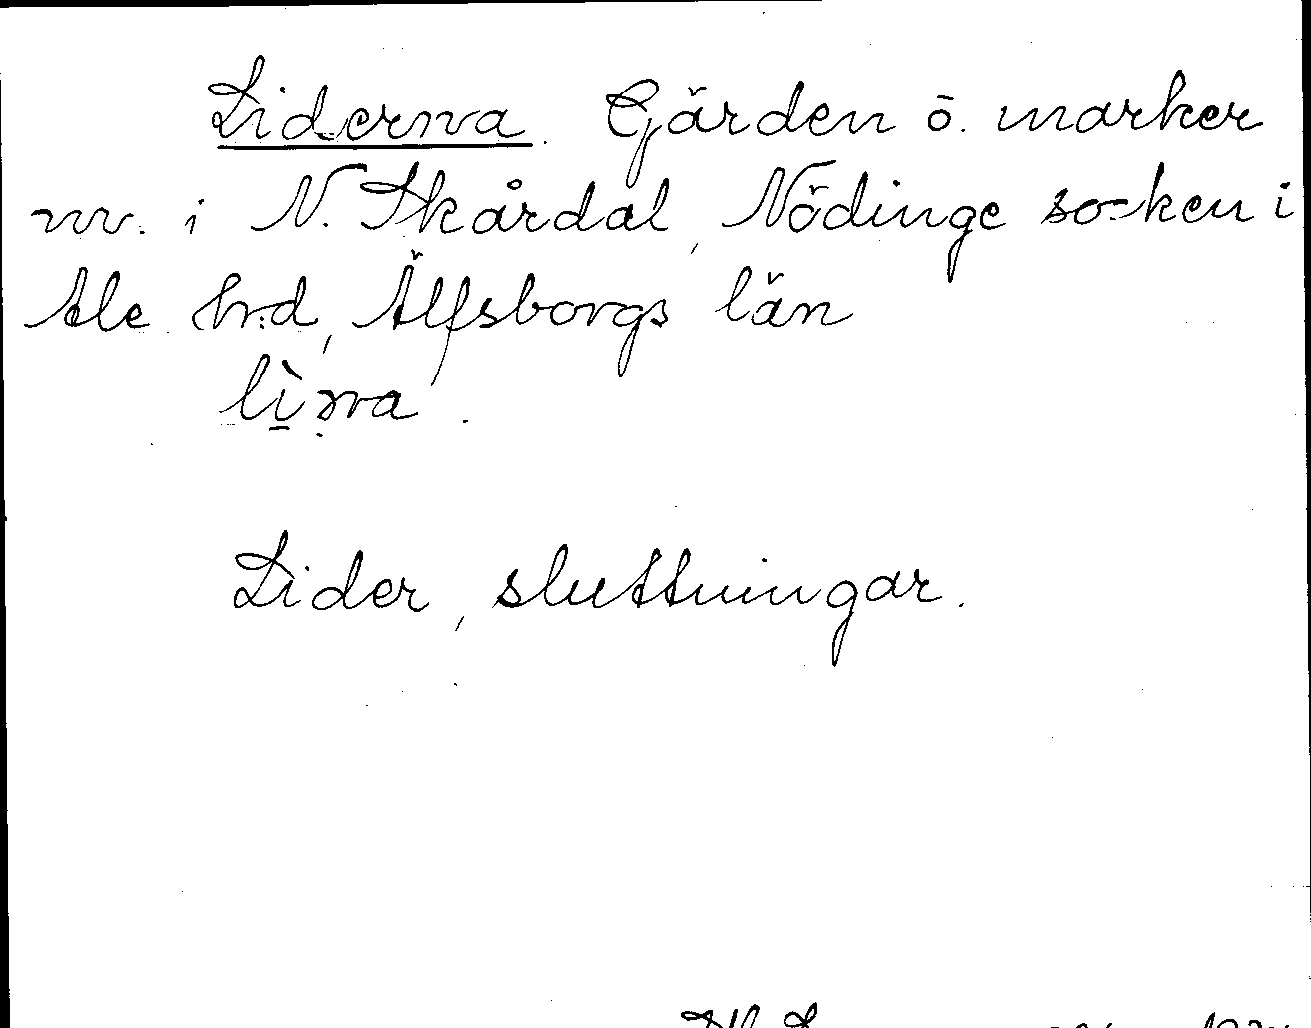 Liderna. Gärden o. marker
nv. i N. Skårdal, Nödinge socken i
Ale hrd, Älfsborgs län
Lider, sluttningar.